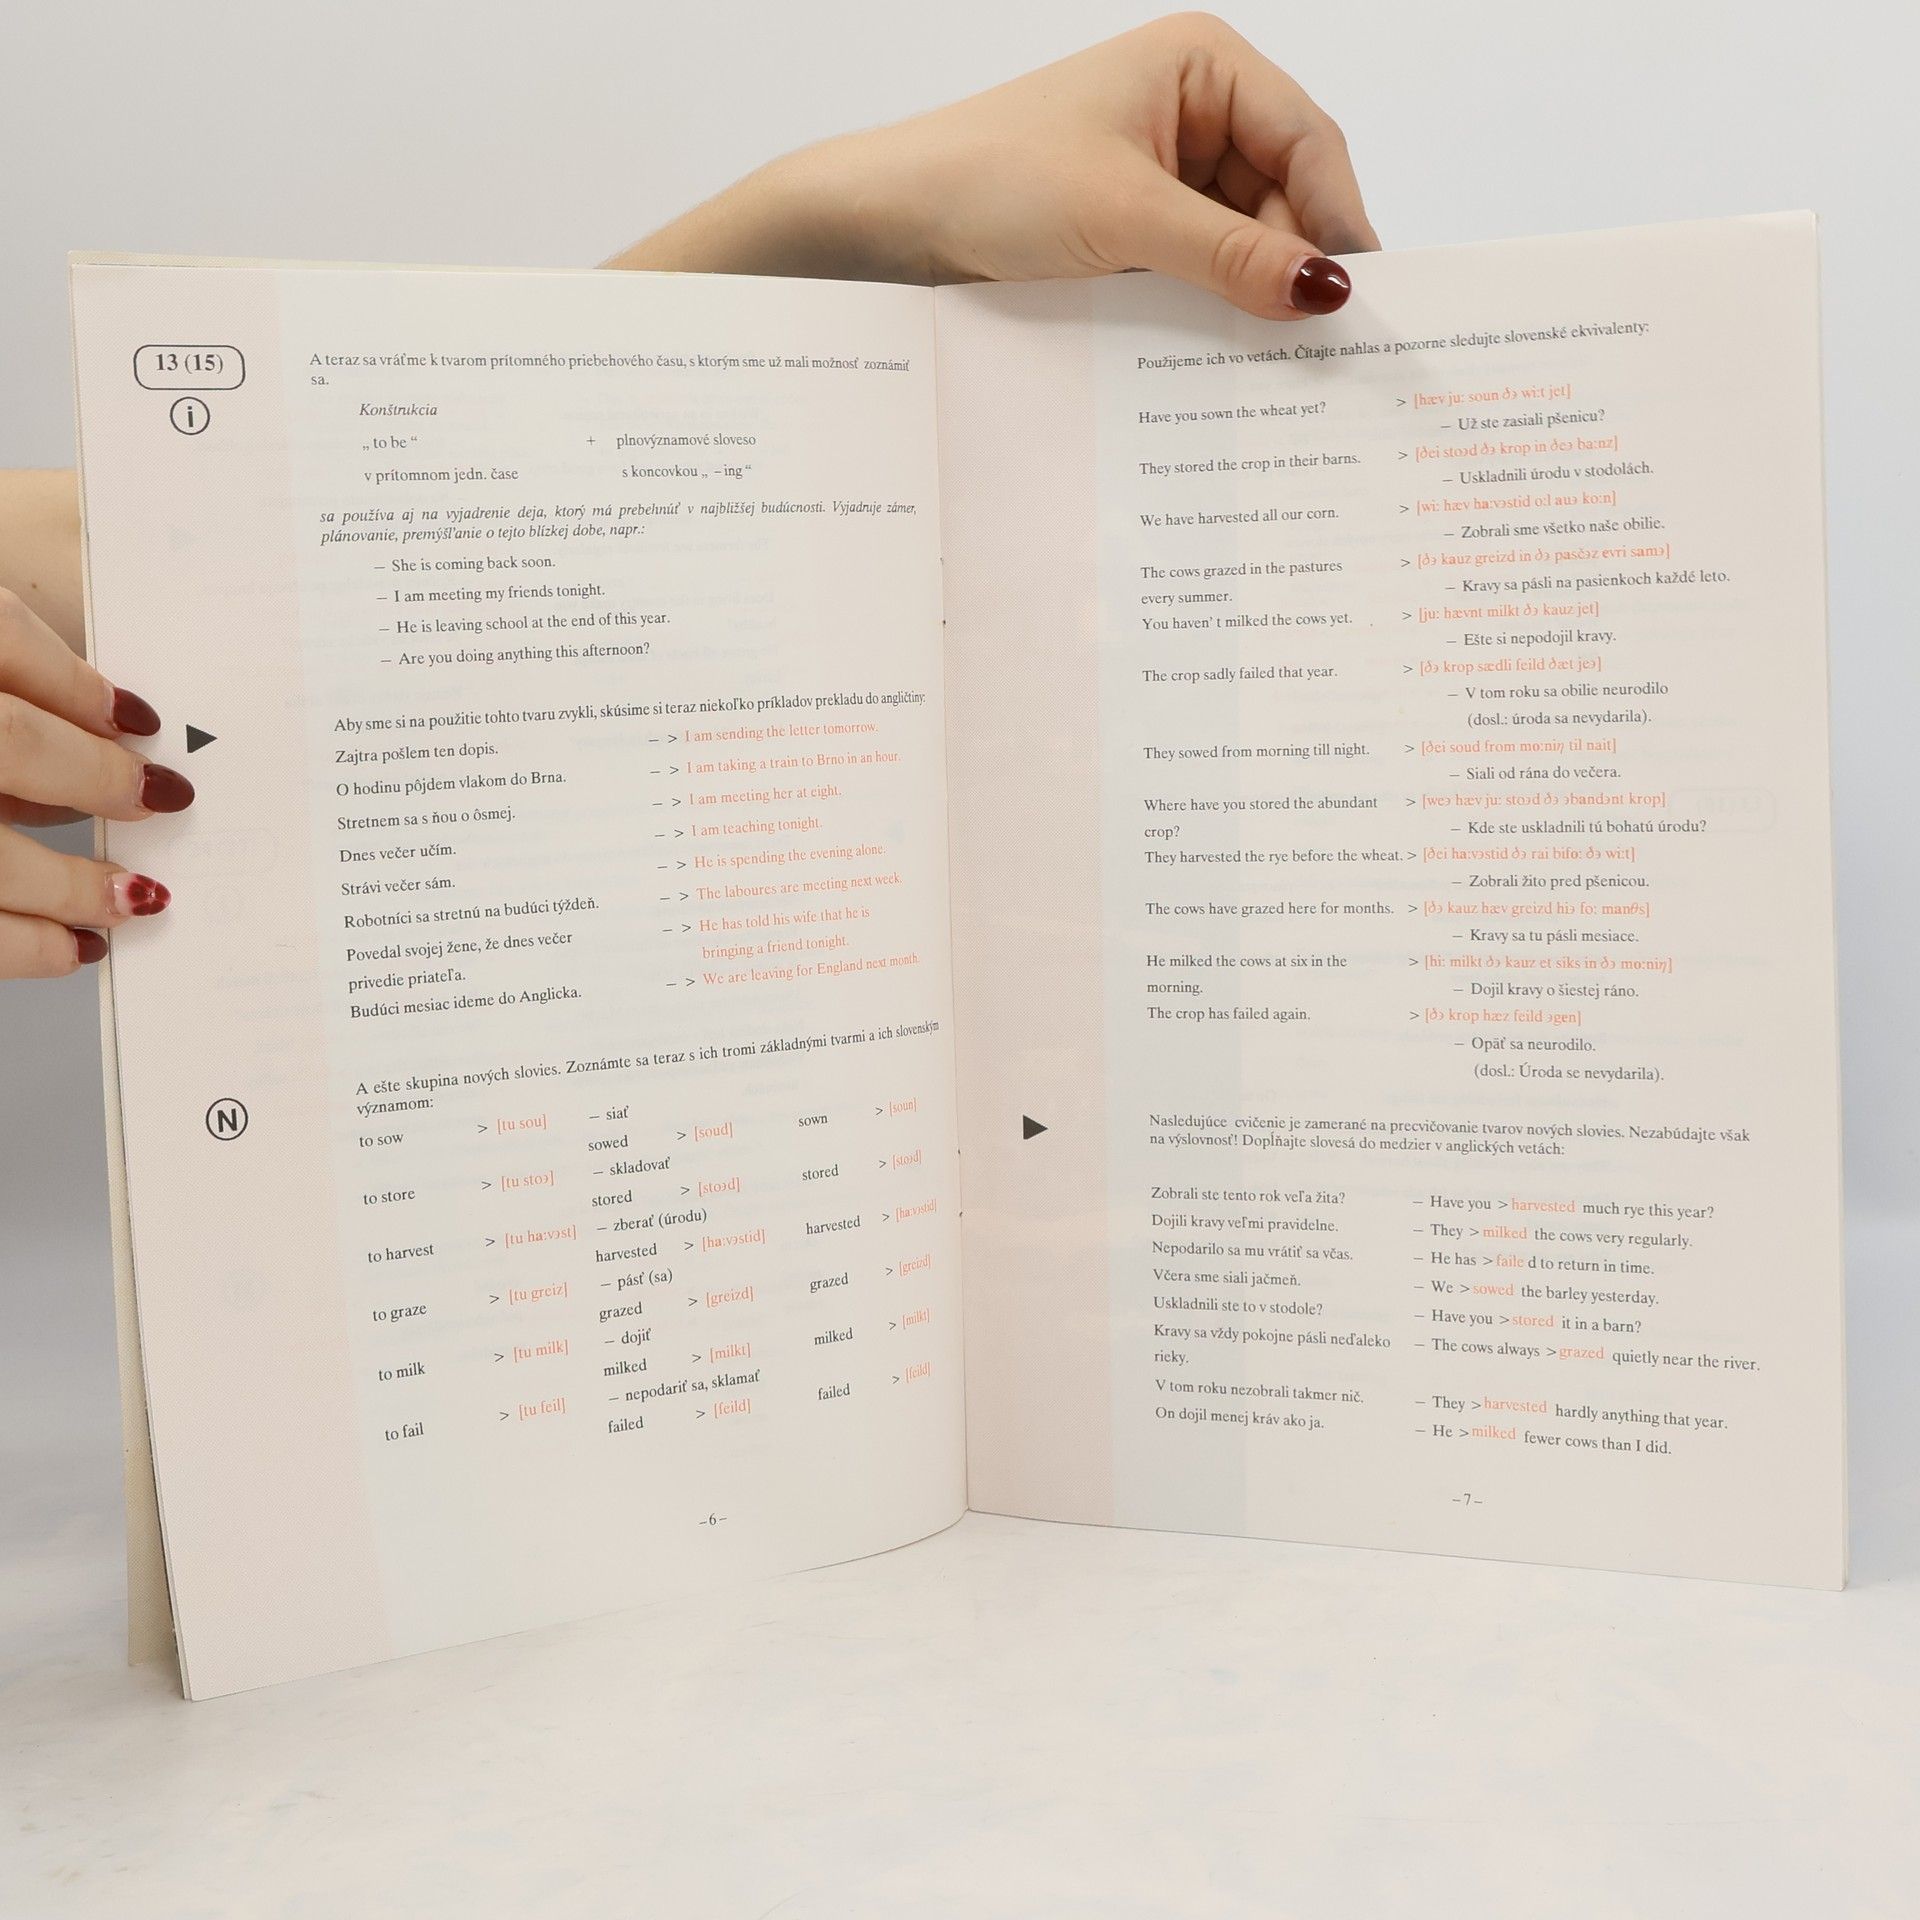 13 (15)
i
A teraz sa vráťme k tvarom prítomného priebehového času, s ktorým sme už mali možnosť zoznámiť
sa.
Konštrukcia
„ to be “ + plnovýznamové sloveso
v prítomnom jedn. čase s koncovkou „ –ing “
sa používa aj na vyjadrenie deja, ktorý má prebehnúť v najbližšej budúcnosti. Vyjadruje zámer,
plánovanie, premýšľanie o tejto blízkej dobe, napr.:
– She is coming back soon.
– I am meeting my friends tonight.
– He is leaving school at the end of this year.
– Are you doing anything this afternoon?
Aby sme si na použitie tohto tvaru zvykli, skúsime si teraz niekoľko príkladov prekladu do angličtiny:
Zajtra pošlem ten dopis. – > I am sending the letter tomorrow.
O hodinu pôjdem vlakom do Brna. – > I am taking a train to Brno in an hour.
Stretnem sa s ňou o ôsmej. – > I am meeting her at eight.
Dnes večer učím. – > I am teaching tonight.
Strávi večer sám. – > He is spending the evening alone.
Robotníci sa stretnú na budúci týždeň. – > The laboures are meeting next week.
Povedal svojej žene, že dnes večer – > He has told his wife that he is
privedie priateľa. bringing a friend tonight.
Budúci mesiac ideme do Anglicka. – > We are leaving for England next month.
A ešte skupina nových slovies. Zoznámte sa teraz s ich tromi základnými tvarmi a ich slovenským
významom:
N
to sow > [tu sou] – siať
sowed > [soud] sown > [soun]
to store > [tu stoɔ] – skladovať
stored > [stoɔd] stored > [stoɔd]
to harvest > [tu ha:vɔst] – zberať (úrodu)
harvested > [ha:vɔstid] harvested > [ha:vɔstid]
to graze > [tu greiz] – pásť (sa)
grazed > [greizd] grazed > [greizd]
to milk > [tu milk] – dojiť
milked > [milkt] milked > [milkt]
to fail > [tu feil] – nepodariť sa, sklamať
failed > [feild] failed > [feild]
–6–
Použijeme ich vo vetách. Čítajte nahlas a pozorne sledujte slovenské ekvivalenty:
Have you sown the wheat yet? > [hæv ju: soun ðɔ wi:t jet]
– Už ste zasiali pšenicu?
They stored the crop in their barns. > [ðei stoɔd ðɔ krop in ðeɔ ba:nz]
– Uskladnili úrodu v stodolách.
We have harvested all our corn. > [wi: hæv ha:vɔstid o:l auɔ ko:n]
– Zobrali sme všetko naše obilie.
The cows grazed in the pastures > [ðɔ kauz greizd in ðɔ pasčɔz evri samɔ]
every summer. – Kravy sa pásli na pasienkoch každé leto.
You haven’ t milked the cows yet. > [ju: hævnt milkt ðɔ kauz jet]
– Ešte si nepodojil kravy.
The crop sadly failed that year. > [ðɔ krop sædli feild ðæt jeɔ]
– V tom roku sa obilie neurodilo
(dosl.: úroda sa nevydarila).
They sowed from morning till night. > [ðei soud from mo:niŋ til nait]
– Siali od rána do večera.
Where have you stored the abundant > [weɔ hæv ju: stoɔd ðɔ ɔbandɔnt krop]
crop? – Kde ste uskladnili tú bohatú úrodu?
They harvested the rye before the wheat. > [ðei ha:vɔstid ðɔ rai bifo: ðɔ wi:t]
– Zobrali žito pred pšenicou.
The cows have grazed here for months. > [ðɔ kauz hæv greizd hiɔ fo: manθs]
– Kravy sa tu pásli mesiace.
He milked the cows at six in the > [hi: milkt ðɔ kauz et siks in ðɔ mo:niŋ]
morning. – Dojil kravy o šiestej ráno.
The crop has failed again. > [ðɔ krop hæz feild ɔgen]
– Opäť sa neurodilo.
(dosl.: Úroda se nevydarila).
Nasledujúce cvičenie je zamerané na precvičovanie tvarov nových slovies. Nezabúdajte však
na výslovnosť! Dopĺňajte slovesá do medzier v anglických vetách:
Zobrali ste tento rok veľa žita? – Have you > harvested much rye this year?
Dojili kravy veľmi pravidelne. – They > milked the cows very regularly.
Nepodarilo sa mu vrátiť sa včas. – He has > faile d to return in time.
Včera sme siali jačmeň. – We > sowed the barley yesterday.
Uskladnili ste to v stodole? – Have you > stored it in a barn?
Kravy sa vždy pokojne pásli neďaleko – The cows always > grazed quietly near the river.
rieky.
V tom roku nezobrali takmer nič. – They > harvested hardly anything that year.
On dojil menej kráv ako ja. – He > milked fewer cows than I did.
–7–